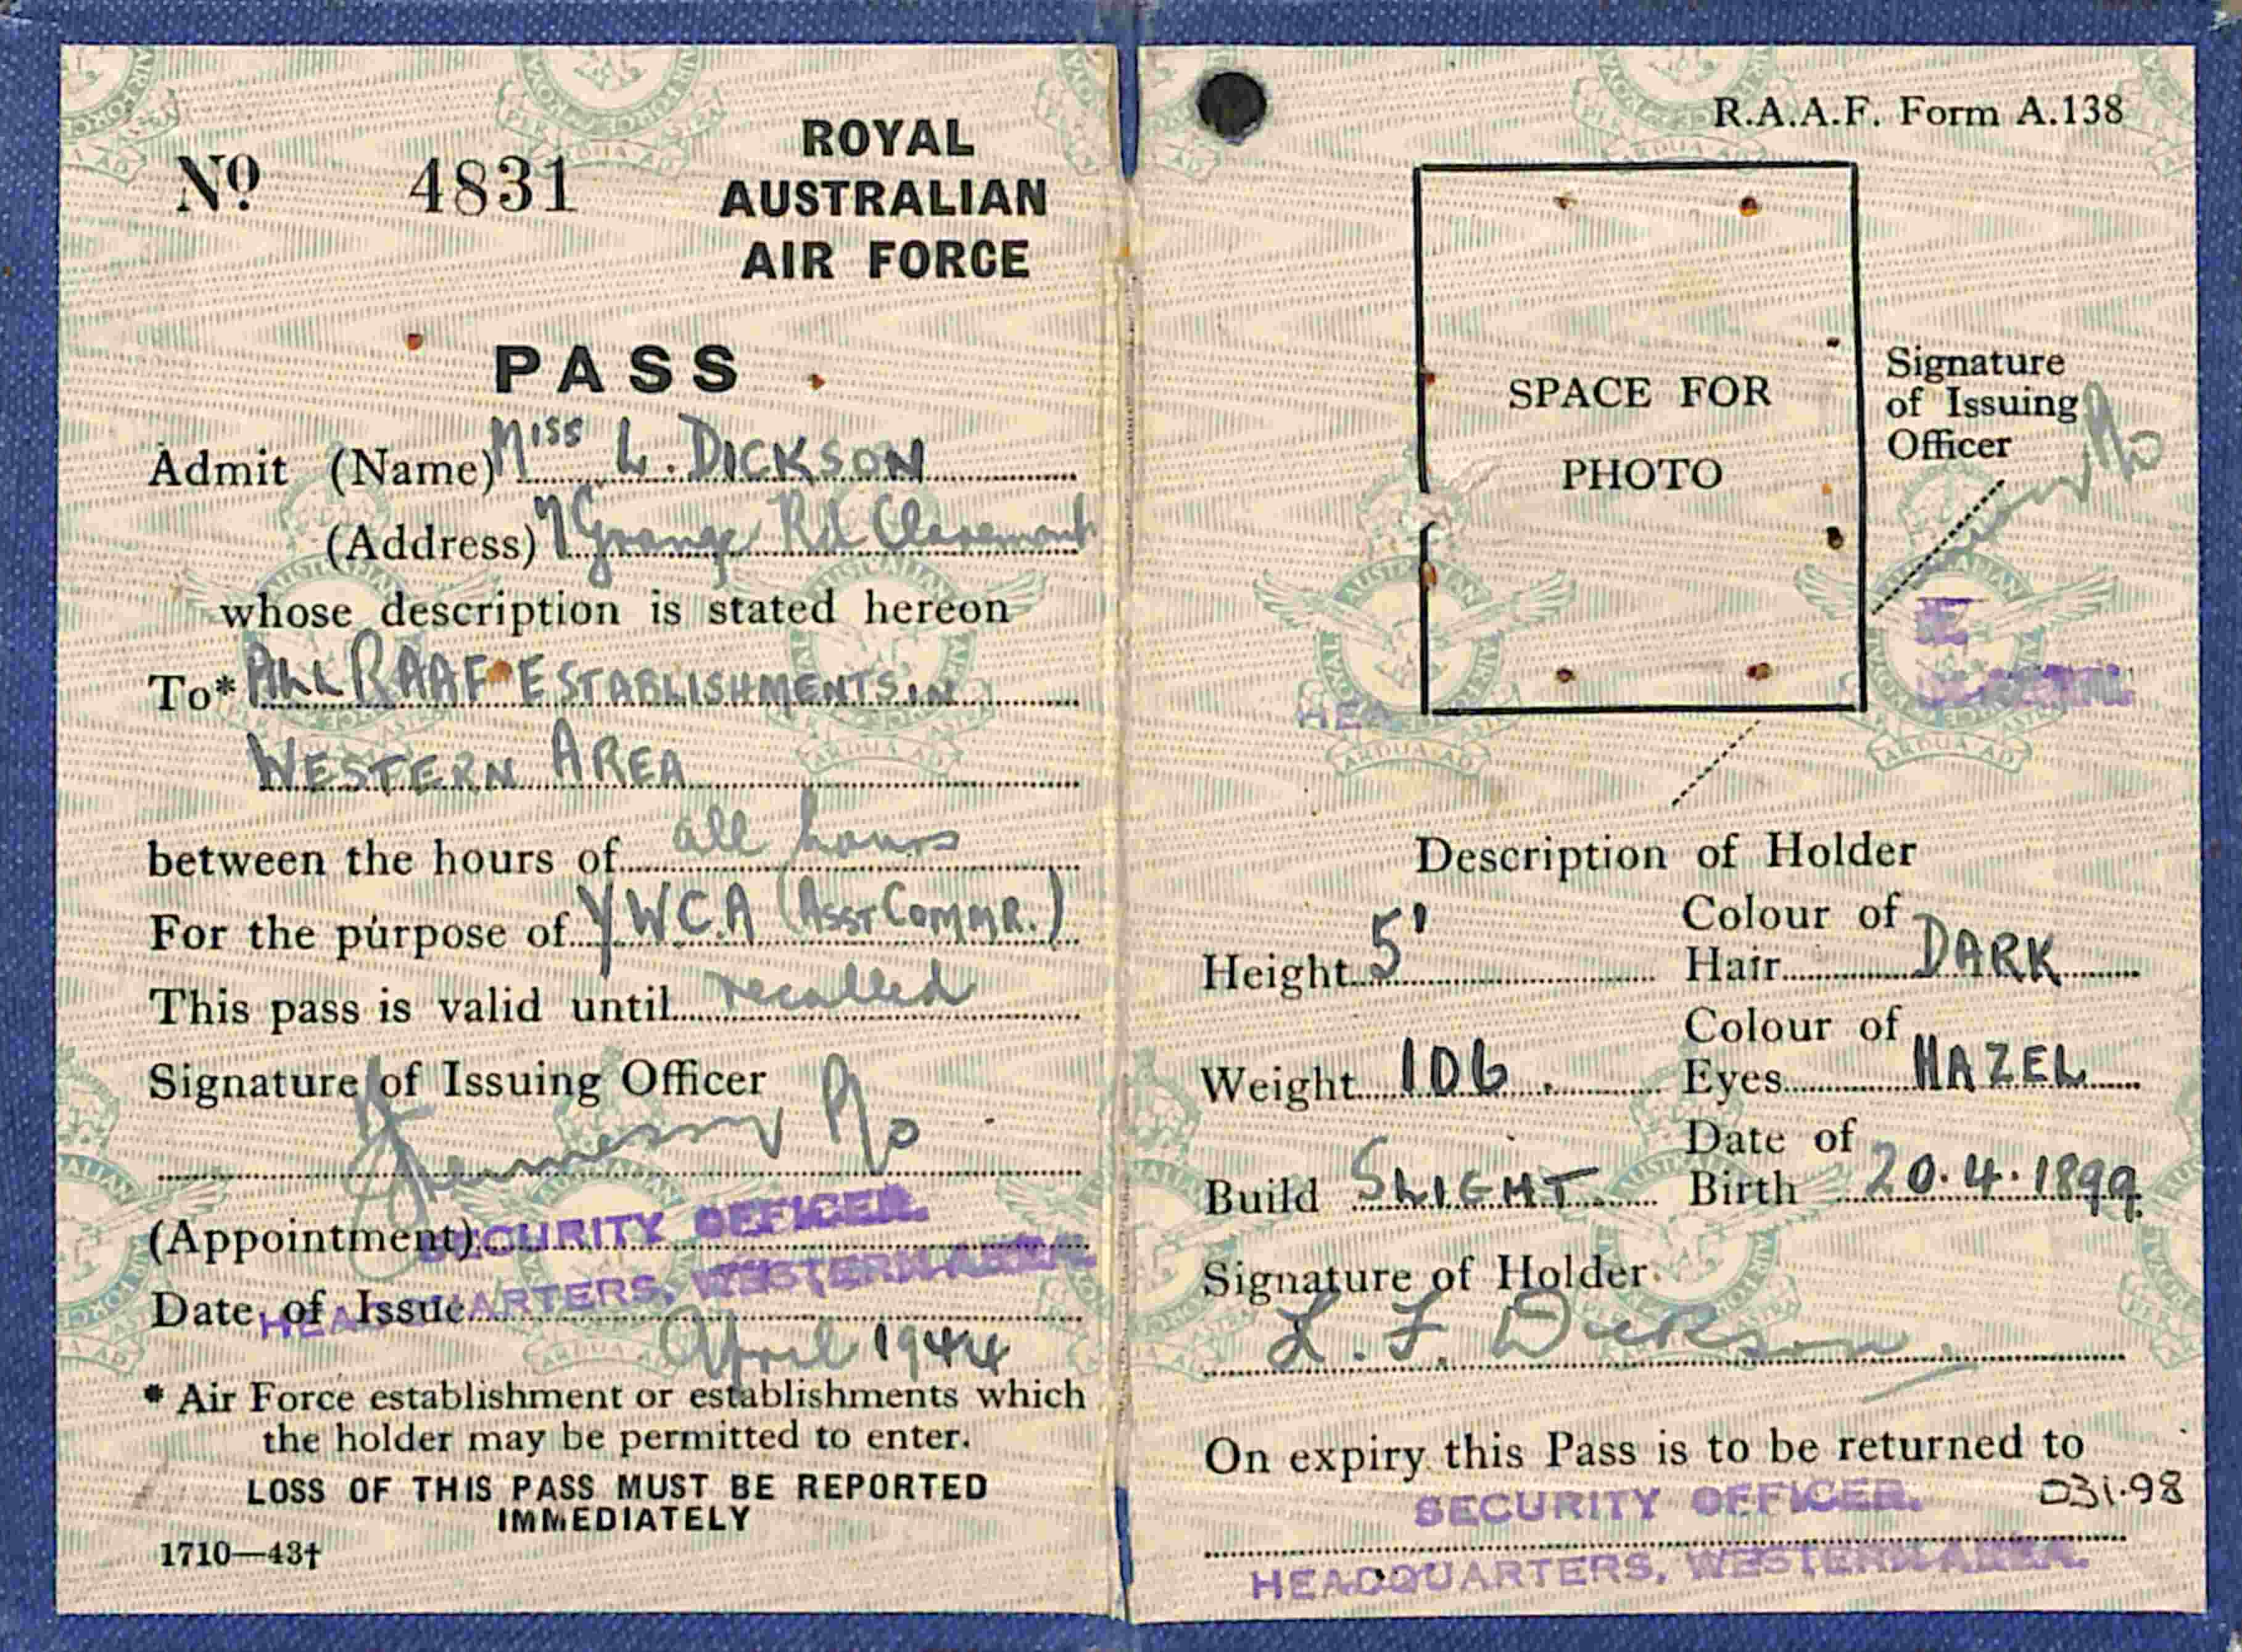 No 4831
ROYAL
AUSTRALIAN
AIR FORCE
PASS
Admit (Name) MISS L. DICKSON
(Address) 7 Grange Rd Claremont
whose description is stated hereon
To* ALL RAAF ESTABLISHMENTS IN
WESTERN AREA
between the hours of all hours
For the purpose of Y.W.C.A (ASST COMMR.)
This pass is valid until recalled
Signature of Issuing Officer
P/O
(Appointment) SECURITY OFFICER.
HEADQUARTERS, WESTERN AREA.
Date of Issue April 1944
* Air Force establishment or establishments which
the holder may be permitted to enter.
LOSS OF THIS PASS MUST BE REPORTED
IMMEDIATELY
1710—43†
R.A.A.F. Form A.138
SPACE FOR
PHOTO
Signature
of Issuing
Officer
P/O
HEA
Description of Holder
Height 5' Colour of Hair DARK
Weight 106. Colour of Eyes HAZEL
Build SLIGHT Date of Birth 20.4.1899
Signature of Holder
L. F. Dickson.
On expiry this Pass is to be returned to
031.98
SECURITY OFFICER.
HEADQUARTERS, WESTERN AREA.